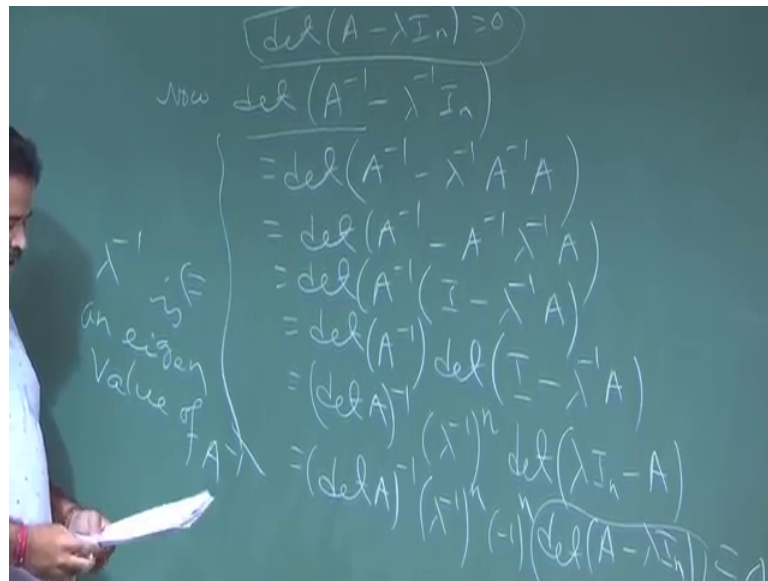 det(A - λIₙ) = 0
Now det(A⁻¹ - λ⁻¹Iₙ)
= det(A⁻¹ - λ⁻¹A⁻¹A)
= det(A⁻¹ - A⁻¹λ⁻¹A)
= det(A⁻¹(I - λ⁻¹A)
= det(A⁻¹) det(I - λ⁻¹A)
= (det A)⁻¹ (λ⁻¹)ⁿ det(λIₙ - A)
= (det A)⁻¹ (λ⁻¹)ⁿ (-1)ⁿ det(A - λIₙ) = 0
λ⁻¹ is
an eigen
value of
A⁻¹